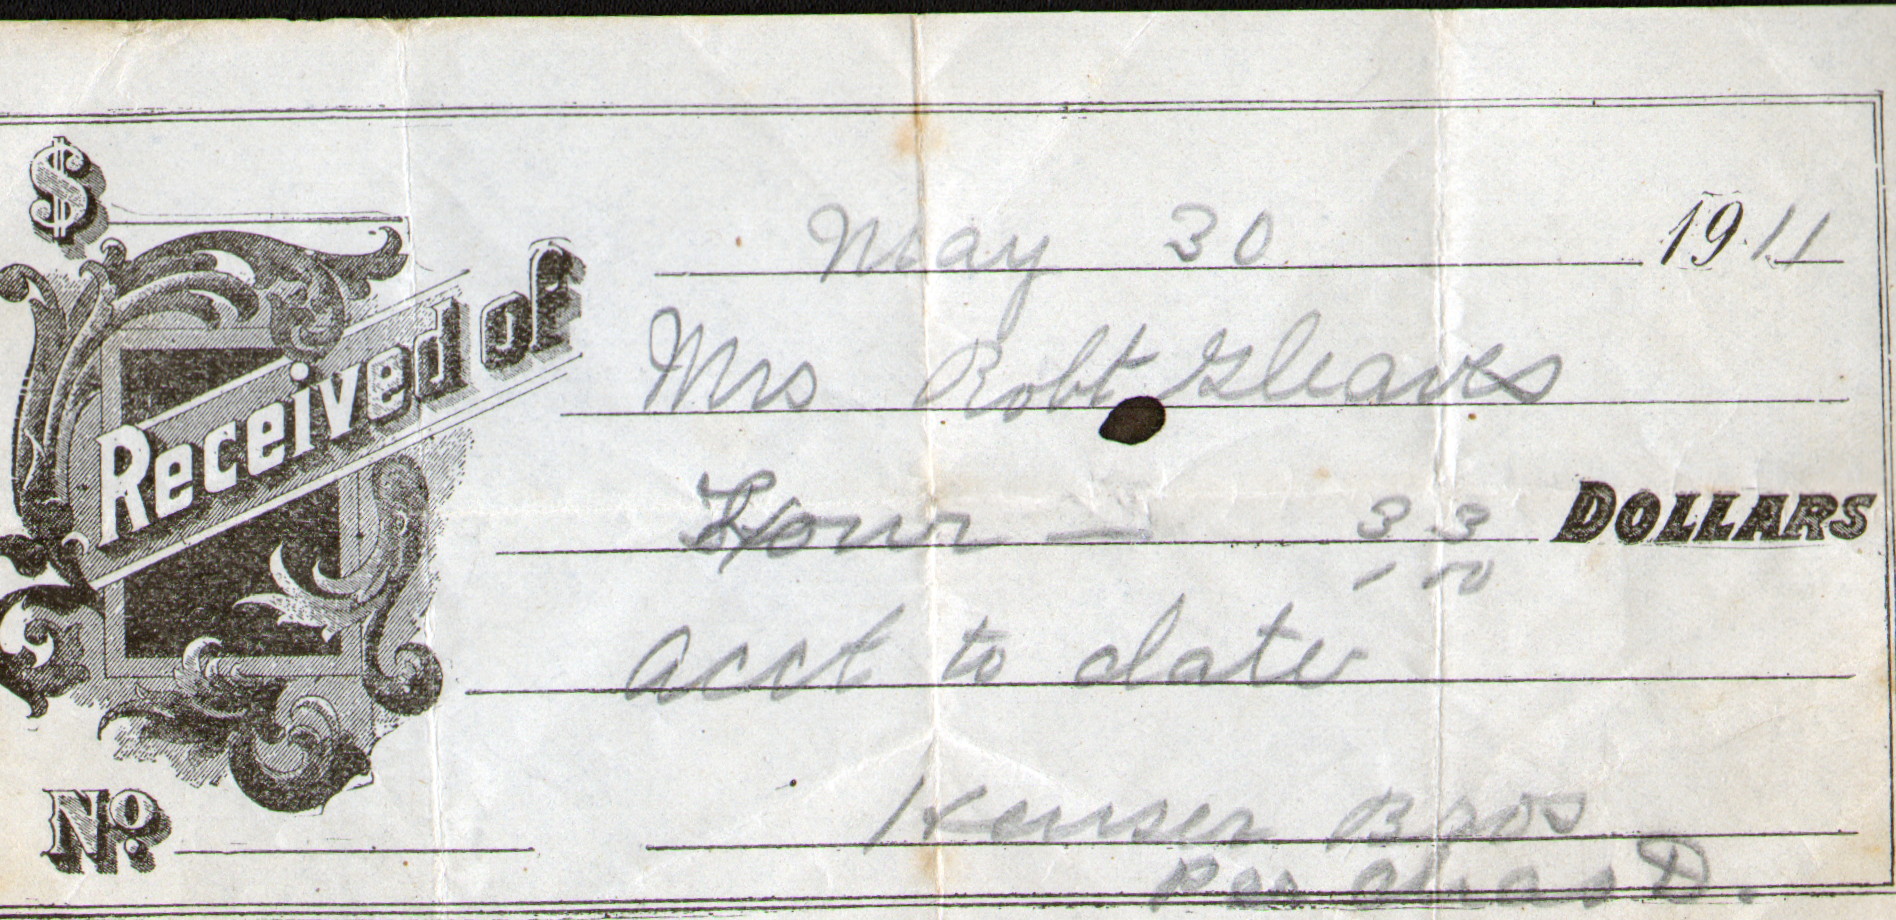 $
May 30 1911
Received of Mrs Robt Gleaves
Four — 33/100 DOLLARS
acct to date
No. Bros
Per Chas D.